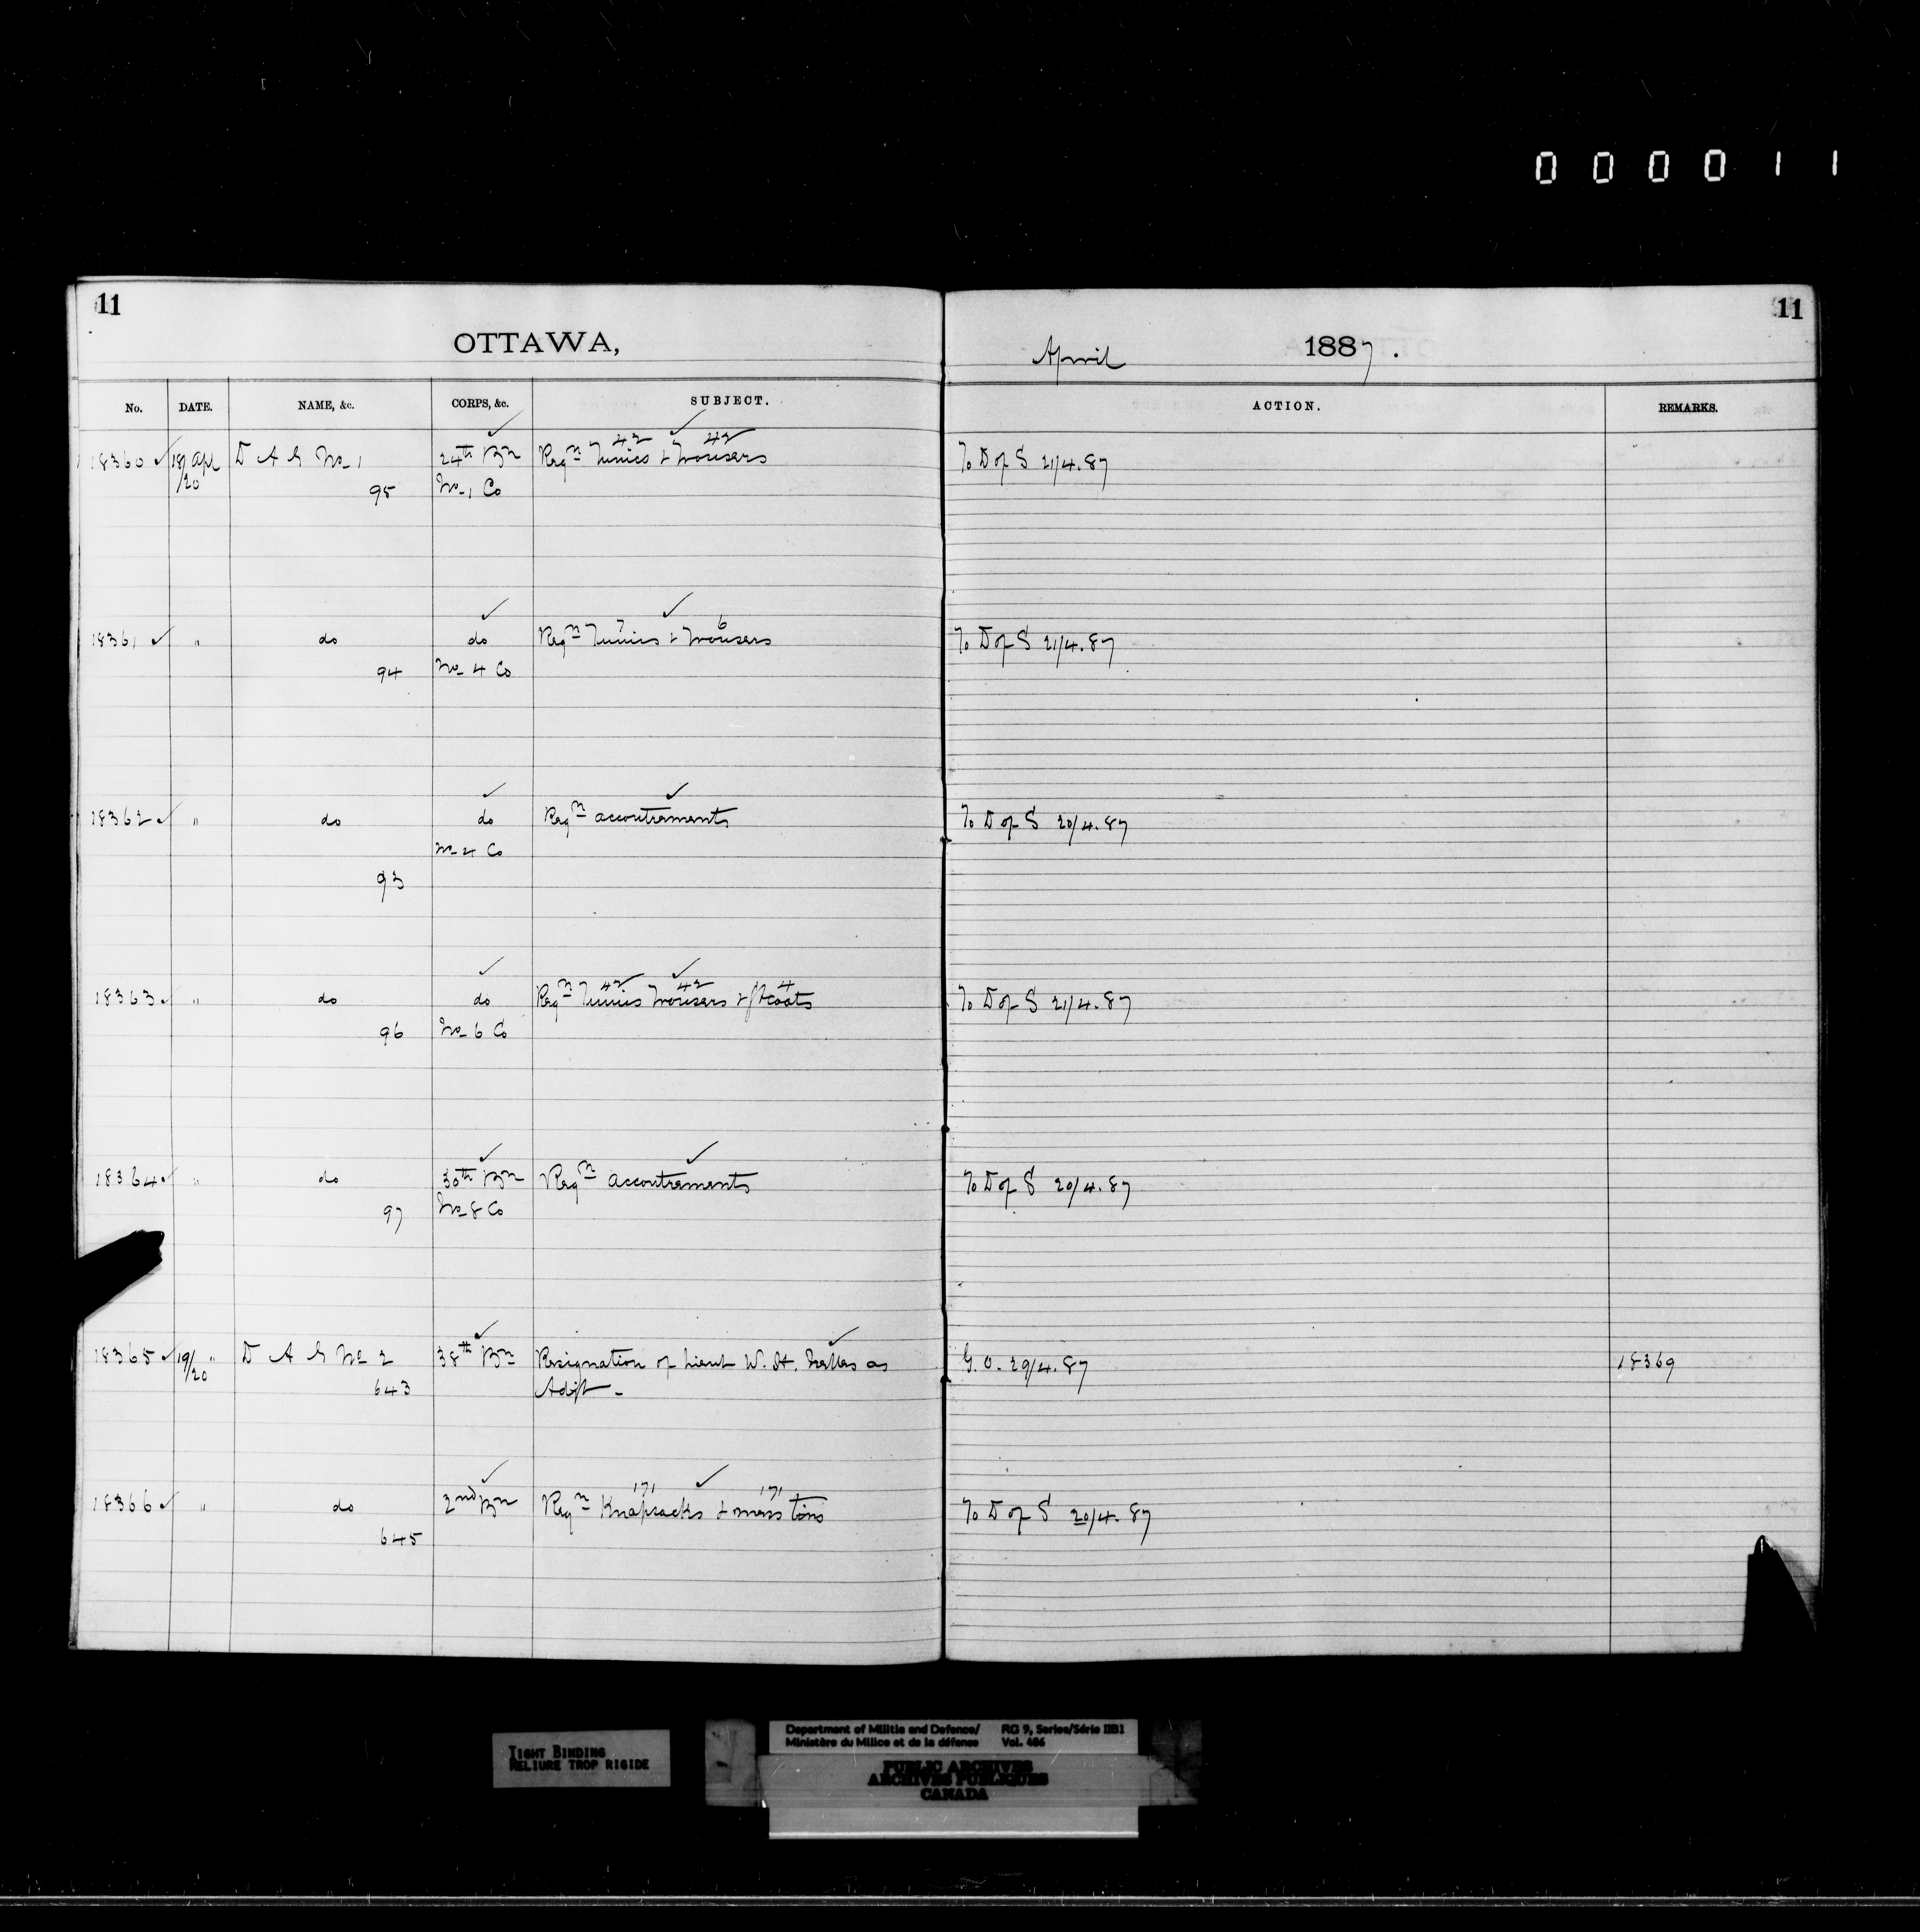 000011
11
11
OTTAWA,
April 1887.
No. DATE. NAME, &c. CORPS, &c. SUBJECT. ACTION. REMARKS.
42 42
18360 18/20 Apl D A G No 1 24th Bn Reqn Tunics & Trousers To D of S 21/4.87
95 No 1 Co
7 6
18361 " do do Reqn Tunics & Trousers To D of S 21/4.87
94 No 4 Co
18362 " do do Reqn accoutrements To D of S 20/4.87
No 4 Co
93
42 42 4
18363 " do do Reqn Tunics Trousers & Coats To D of S 21/4.87
96 No 6 Co
18364 " do 30th Bn Reqn accoutrements To D of S 20/4.87
97 No 8 Co
18365 19/20 " D A G No 2 38th Bn Resignation of Lieut W. H. as G.O. 29/4.87 18369
643 Adjt
171 171
18366 " do 2nd Bn Reqn Knapsacks & mess tins To D of S 20/4.87
645
TIGHT BINDING
RELIURE TROP RIGIDE
Department of Militia and Defence/ RG 9, Series/Série IIB1
Ministère du Milice et de la défense Vol. 486
PUBLIC ARCHIVES
ARCHIVES PUBLIQUES
CANADA